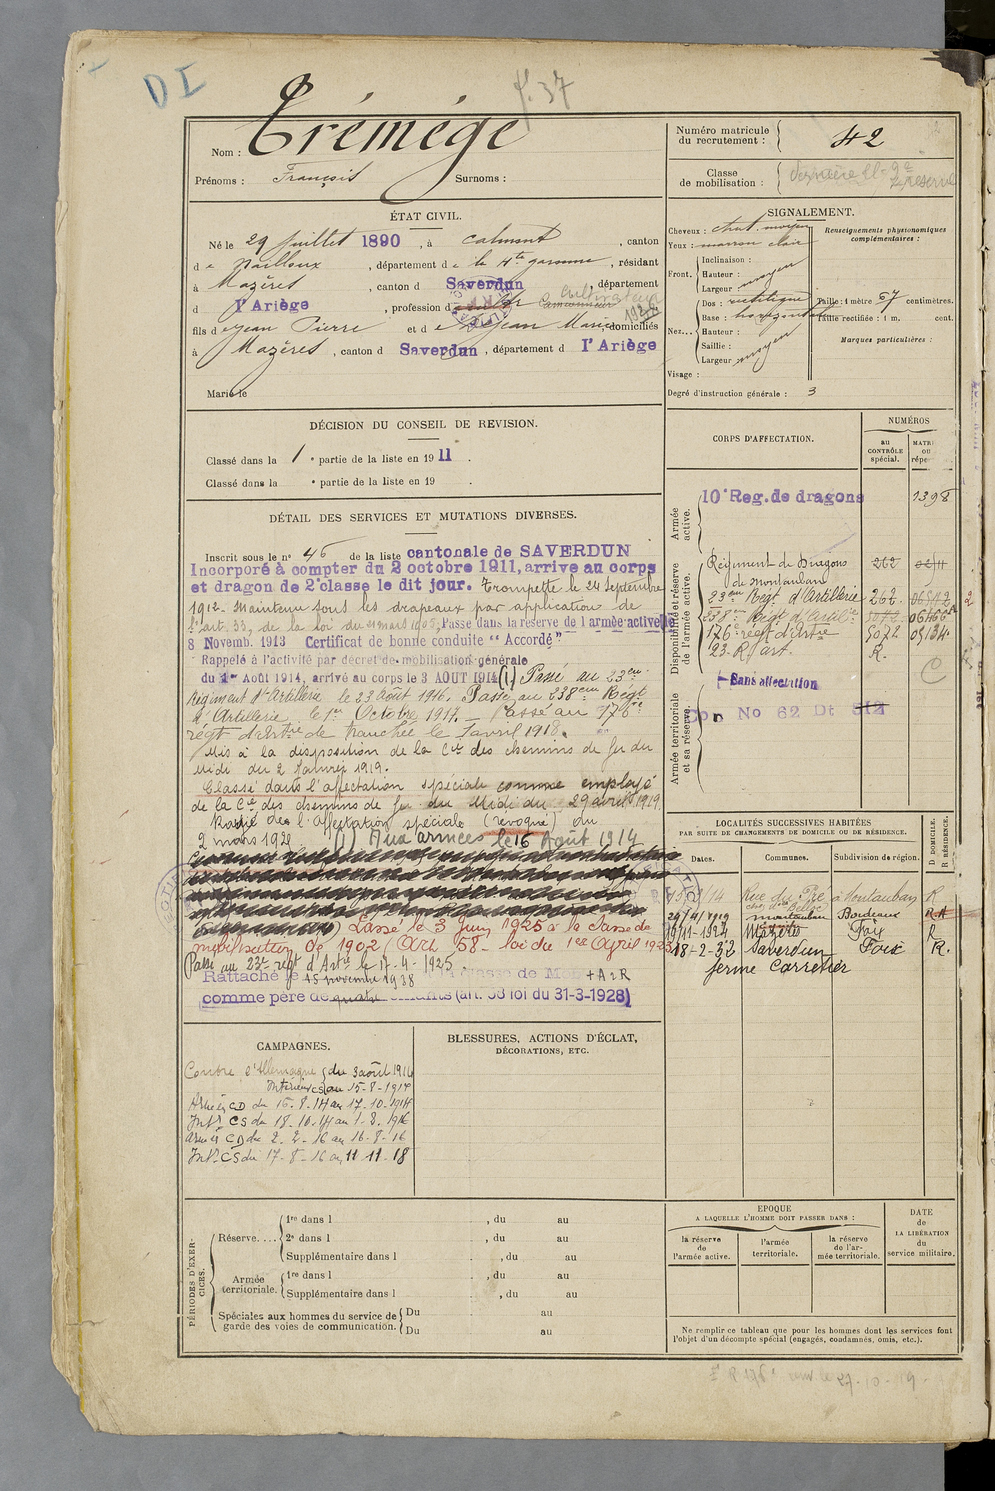 DI
f. 37
Nom : Trémège
Prénoms : François Surnoms :
Numéro matricule du recrutement : 42
Classe de mobilisation : réserve
ÉTAT CIVIL.
Né le 29 Juillet 1890, à Calmont, canton
de Nailloux, département de la Hte garonne, résidant
à Mazères, canton d Saverdun, département
d l'Ariège, profession de Cultivateur
fils de Jean Pierre et de Jean Marie, domiciliés
à Mazères, canton d Saverdun, département d l'Ariège
Marié le
SIGNALEMENT.
Cheveux : chat. moyen
Yeux : marron clair
Renseignements physionomiques complémentaires :
Front.
Inclinaison :
Hauteur :
Largeur : moyen
Nez...
Dos : rectiligne
Base : horizontal
Hauteur :
Saillie :
Largeur : moyen
Taille : 1 mètre 67 centimètres.
Taille rectifiée : 1 m. cent.
Marques particulières :
Visage :
Degré d'instruction générale : 3
DÉCISION DU CONSEIL DE REVISION.
Classé dans la 1e partie de la liste en 1911.
Classé dans la e partie de la liste en 19 .
DÉTAIL DES SERVICES ET MUTATIONS DIVERSES.
Inscrit sous le no 46 de la liste cantonale de SAVERDUN
Incorporé à compter du 2 octobre 1911, arrive au corps
et dragon de 2e classe le dit jour. Trompette le 24 Septembre
1912. Maintenu sous les drapeaux par application de
l'art. 33, de la loi du 21 mars 1905, Passé dans la réserve de l'armée active le
8 Novemb. 1913 Certificat de bonne conduite "Accordé"
Rappelé à l'activité par décret de mobilisation générale
du 1er Août 1914, arrivé au corps le 3 AOUT 1914 (1) Passé au 23eme
Régiment d'Artillerie le 23 Août 1916. Passé au 238eme Régt
d'Artillerie le 1er Octobre 1917. Passé au 176me
régt d'Artrie de tranchée le 1 avril 1918.
Mis à la disposition de la Cie des chemins de fer du
Midi du 2 Janvier 1919.
Classé dans l'affectation spéciale comme employé
de la Cie des chemins de fer du Midi du 29 avril 1919.
Rayé de l'affectation spéciale (révoqué) du
2 mars 1921 (1) Aux armées le 16 Août 1914
Classé le 3 Juin 1925 à la classe de
mobilisation de 1902 (Art 58 - loi du 1er Avril 1923)
Passé au 23e régt d'Artie le 17-4-1925.
Rattaché le 15 novembre 1938 à la classe de Mob + A2R
comme père de quatre enfants (art. 58 loi du 31-3-1928)
CORPS D'AFFECTATION.
NUMÉROS
au CONTRÔLE spécial.
MATRI OU répe
Armée active.
10e Reg. de dragons 1398
Disponibilité et réserve de l'armée active.
Régiment de Dragons de Montauban 262
23eme Régt d'Artillerie 262
238eme Régt d'Artillerie 5072
176e régt d'Artrie 5072 05134
23. R. art. R.
Armée territoriale et sa réserve.
Sans affectation
No 62 Dt 812
LOCALITÉS SUCCESSIVES HABITÉES
PAR SUITE DE CHANGEMENTS DE DOMICILE OU DE RÉSIDENCE.
Dates. Communes. Subdivision de région. D. DOMICILE. R. RÉSIDENCE.
Rue du Pré à Montauban R
29/4/1919 montauban Bordeaux R
19-11-1924 Mazères Foix R
18-2-32 Saverdun Foix R.
ferme Carretier
CAMPAGNES.
Contre l'Allemagne du 3 août 1914
Intérieur CS au 15-8-1914
Armées CD du 16.8.14 au 17.10.1914
Intr CS du 18.10.14 au 1.8.1916
Armées CD du 2.2.16 au 16.8.16
Intr CS du 17-8-16 au 11 11 18
BLESSURES, ACTIONS D'ÉCLAT,
DÉCORATIONS, ETC.
PÉRIODES D'EXERCICES.
Réserve....
1re dans l , du au
2e dans l , du au
Supplémentaire dans l , du au
Armée territoriale.
1re dans l , du au
Supplémentaire dans l , du au
Spéciales aux hommes du service de garde des voies de communication.
Du au
Du au
EPOQUE
A LAQUELLE L'HOMME DOIT PASSER DANS :
la réserve de l'armée active.
l'armée territoriale.
la réserve de l'armée territoriale.
DATE de LA LIBÉRATION du service militaire.
Ne remplir ce tableau que pour les hommes dont les services font
l'objet d'un décompte spécial (engagés, condamnés, omis, etc.).